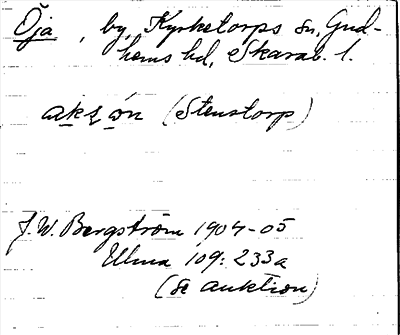 Öja, by, Kyrketorps sn, Gud-
hems hd, Skarab. l.
akʂón (Stenstorp)
J. W. Bergström 1904-05
Ulma 109: 233a
(se auktion)